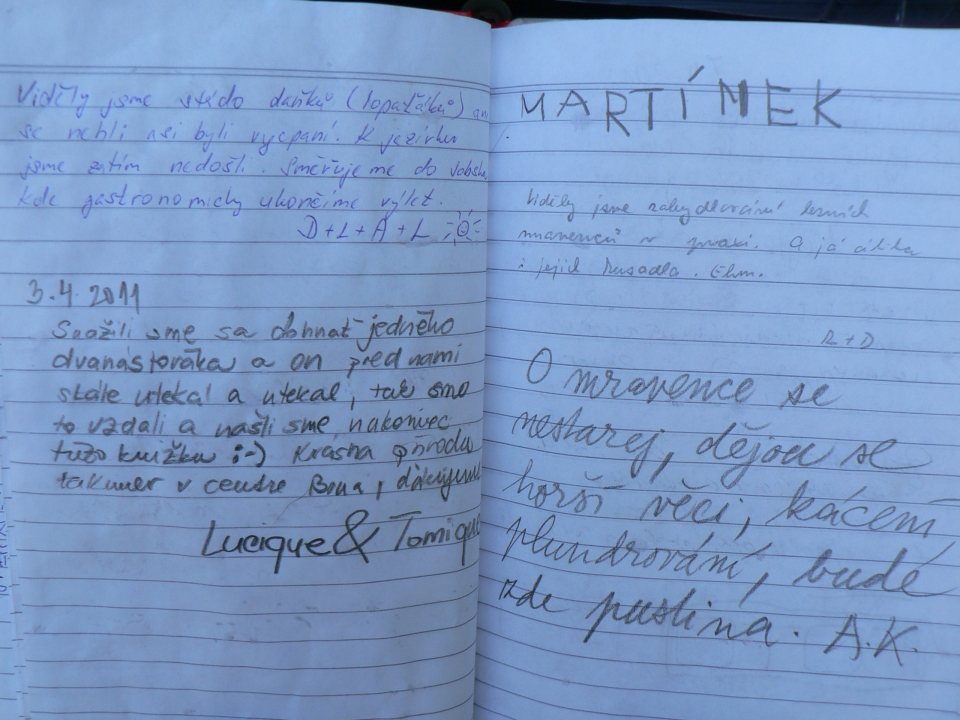 Viděly jsme stádo daňků (lopaťáků) an
se nehli asi byli vycpaní. K jezírku
jsme zatím nedošli. Směřujeme do
kde gastronomicky ukončíme výlet.
D+L+A+L
3.4.2011
Snažili sme sa dohnať jedného
dvanástoráka a on pred nami
stále utekal a utekal, tak smo
to vzdali a našli sme nakoniec
túto knižku ;-) Krásna príroda
takmer v centre Brna, ďakujeme
Lucique & Tomique
MARTÍNEK
Viděly jsme lesních
mravenců v praxi. A já
i jejich kusadla. Ehm.
R+D
O mravence se
nestarej, dějou se
horší věci, kácení
plundrování, bude
zde pustina. A.K.